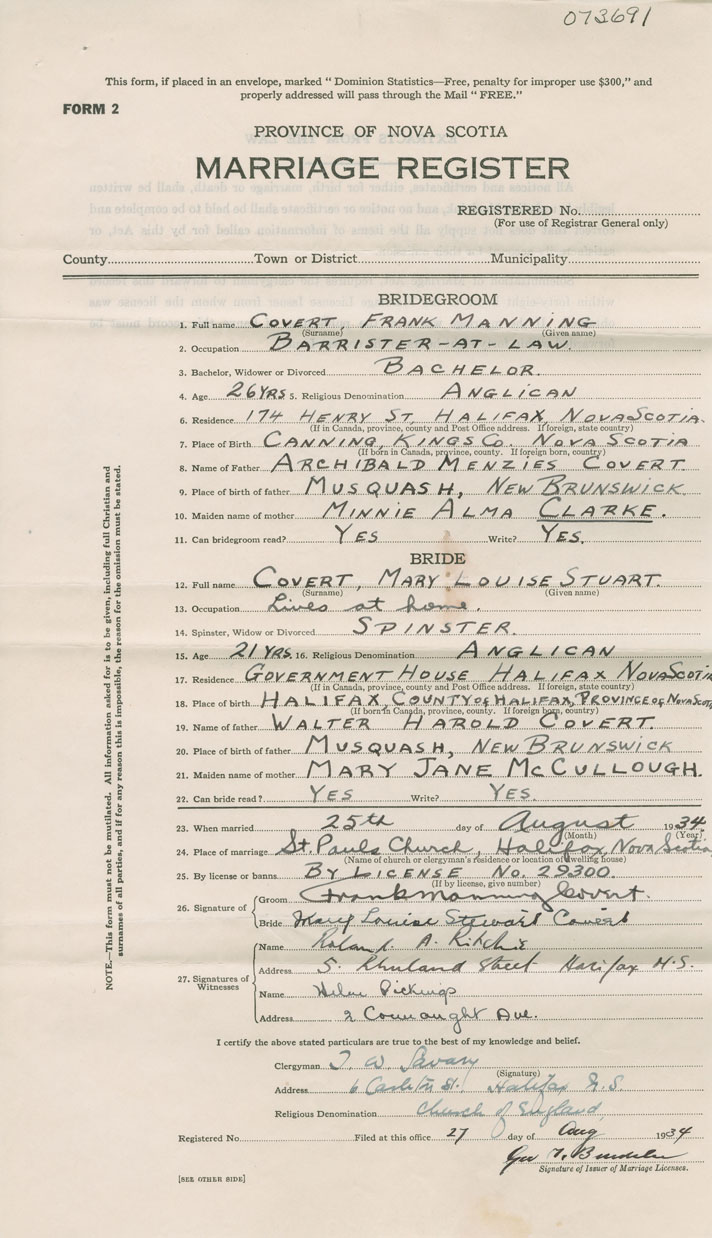 073691
This form, if placed in an envelope, marked " Dominion Statistics—Free, penalty for improper use $300," and
properly addressed will pass through the Mail " FREE."
FORM 2
PROVINCE OF NOVA SCOTIA
MARRIAGE REGISTER
REGISTERED No.
(For use of Registrar General only)
County Town or District Municipality
BRIDEGROOM
1. Full name COVERT, FRANK MANNING
(Surname) (Given name)
2. Occupation BARRISTER-AT-LAW.
3. Bachelor, Widower or Divorced BACHELOR.
4. Age 26 YRS 5. Religious Denomination ANGLICAN
6. Residence 174 HENRY ST, HALIFAX, NOVA SCOTIA.
(If in Canada, province, county and Post Office address. If foreign, state country)
7. Place of Birth CANNING, KINGS CO. NOVA SCOTIA
(If born in Canada, province, county. If foreign born, country)
8. Name of Father ARCHIBALD MENZIES COVERT.
9. Place of birth of father MUSQUASH, NEW BRUNSWICK
10. Maiden name of mother MINNIE ALMA CLARKE.
11. Can bridegroom read? YES Write? YES.
BRIDE
12. Full name COVERT, MARY LOUISE STUART.
(Surname) (Given name)
13. Occupation Lives at home.
14. Spinster, Widow or Divorced SPINSTER.
15. Age 21 YRS. 16. Religious Denomination ANGLICAN
17. Residence GOVERNMENT HOUSE HALIFAX NOVA SCOTIA
(If in Canada, province, county and Post Office address. If foreign, state country)
18. Place of Birth HALIFAX, COUNTY of HALIFAX, PROVINCE OF NOVA SCOTIA
(If born in Canada, province, county. If foreign born, country)
19. Name of father WALTER HAROLD COVERT.
20. Place of birth of father MUSQUASH, NEW BRUNSWICK
21. Maiden name of mother MARY JANE MCCULLOUGH.
22. Can bride read? YES Write? YES.
23. When married 25th day of August 1934.
(Month) (Year)
24. Place of marriage St. Pauls Church, Halifax, Nova Scotia
(Name of church or clergyman's residence or location of dwelling house)
25. By license or banns BY LICENSE No. 29300.
(If by license, give number)
26. Signature of
Groom Frank Manning Covert.
Bride Mary Louise Stewart Covert
27. Signatures of Witnesses
Name Roland A. Ritchie
Address 5. Street Halifax N.S.
Name Helen Pickings
Address 2 Connaught Ave.
I certify the above stated particulars are true to the best of my knowledge and belief.
Clergyman T. W. Savary
(Signature)
Address 6 Carleton St. Halifax N.S.
Religious Denomination Church of England
Registered No. Filed at this office 27 day of Aug 1934
Signature of Issuer of Marriage Licenses.
[SEE OTHER SIDE]
NOTE.—This form must not be mutilated. All information asked for is to be given, including full Christian and
surnames of all parties, and if for any reason this is impossible, the reason for the omission must be stated.